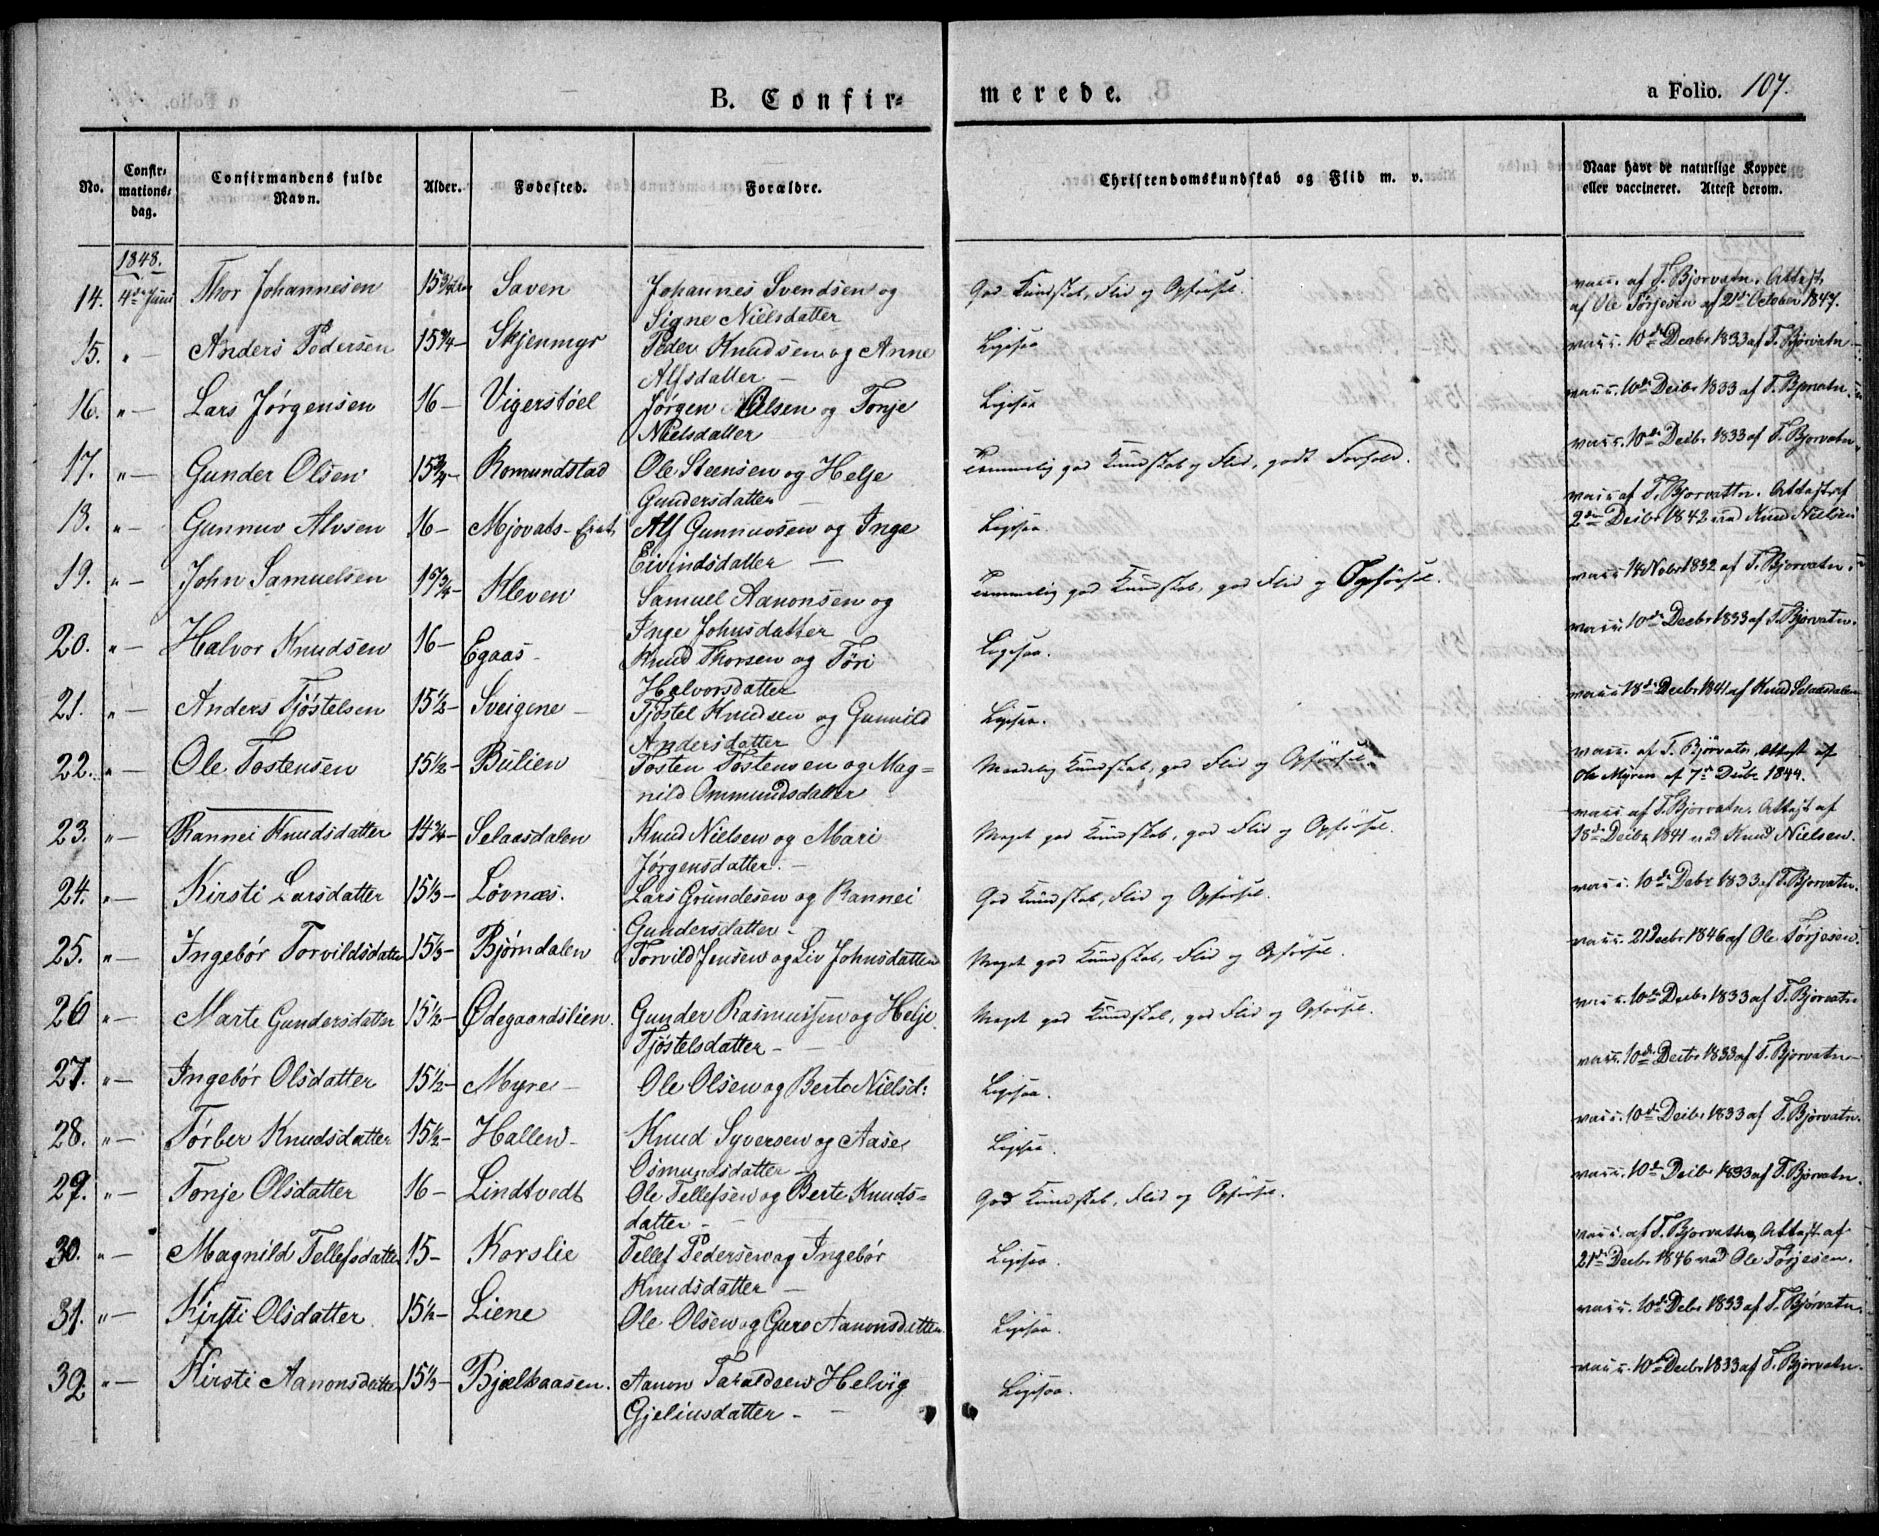 B. Confir= merede. a Folio. 107.
No. Confir= mations= dag. Confirmandens fulde Navn. Alder. Fødested. Forældre. Christendomskundskab og Flid m. v. Naar havt de naturlige Kopper eller vaccineret. Attest derom.
1848.
14. 4de Juni Thor Johannesen 15 3/4 Saven Johannes Svendsen og God Kundskab, Flid og Opførsel. vacc. af T. Bjorvatn. Attest
Signe Nielsdatter af Ole Tørjesen af 21de October 1847.
15. " — Anders Pedersen 15 3/4 — Skjenmyr Peder Knudsen og Anne Ligesaa vacc. 10de Decbr 1833 af T. Bjorvatn
Alfsdatter —
16. " — Lars Jørgensen 16 — Vigerstøel Jørgen Olsen og Tonje Ligesaa vacc. 10de Decbr 1833 af T. Bjorvatn.
Nielsdatter
17. " — Gunder Olsen 15 3/4 — Romundstad Ole Steensen og Helje Temmelig god Kundskab og Flid, godt Forhold. vacc. 10de Decbr 1833 af T. Bjorvatn
Gundersdatter —
18. " — Gunnuv Alvsen 16 — Alf Gunnuvsen og Inge Ligesaa. vacc af T. Bjorvattn. Attest af
Eivindsdatter — 2den Decbr 1842 ved Knud Nielsen
19. " — John Samuelsen Kleven Samuel Aanonsen og Temmelig god Kundskab, god Flid og Opførsel. vacc 18 Nobr 1832 af T. Bjorvatn.
Inge Johnsdatter
20. " — Halvor Knudsen 16 — Egaas — Knud Thorsen og Tøri Ligesaa. vacc. 10de Decbr 1833 af T. Bjorvatn.
Halvorsdatter
21. " — Anders Tjøstelsen 15 1/2 — Sveigene — Tjøstel Knudsen og Gunnild Ligesaa. vacc 18de Decbr 1841 af Knud Selaasdalen
Andersdatter
22. " — Ole Tostensen 15 1/2 — Bulien Tosten Tostensen og Mag= Maadelig Kundskab, god Flid og Opførsel. vacc. af T. Bjørvatn, Attest af
nild Ommundsdatter Ole Myren af 7de Decbr 1844.
23. " — Rannei Knudsdatter 14 3/4 — Selaasdalen Knud Nielsen og Mari Meget god Kundskab, god Flid og Opførsel. vacc af T. Bjorvatn. Attest af
Jørgensdatter. — 18de Decbr 1841 ved Knud Nielsen.
24. " — Kirsti Larsdatter 15 1/3 — Løvnæs. Lars Grundesen og Rannei God Kundskab, Flid og Opførsel. vacc. 10de Debr 1833 af T. Bjorvatn.
Gundersdatter —
25. " — Ingebør Torvildsdatter 15 1/3 — Bjørndalen Torvild Jensen og Liv Johnsdatter Meget god Kundskab, Flid og Opførsel. vacc. 21 Decbr 1846 af Ole Tørjesen.
26 " — Marte Gundersdatter 15 1/2 — Ødegaardslien. Gunder Rasmussen og Helje Meget god Kundskab, god Flid og Opførsel. vacc. 10de Decbr 1833 af T. Bjorvatn
Tjøstelsdatter —
27. " — Ingebør Olsdatter 15 1/2 — Myre — Ole Olsen og Berte Nielsd: Ligesaa. vacc. 10de Decbr 1833 af T. Bjorvatn —
28. " — Tørber Knudsdatter 15 1/2 — Hallen — Knud Syversen og Aase Ligesaa. vacc. 10de Decbr 1833 af T. Bjørvatn.
Osmundsdatter —
29. " — Tonje Olsdatter 16 — Lindtvedt Ole Tellefsen og Berte Knuds= God Kundskab, Flid og Opførsel. vacc. 10de Decbr 1833 af T. Bjorvatn.
datter —
30. " — Magnild Tellefsdatter 15 — Korslie Tellef Pedersen og Ingebør Ligesaa. vacc. af T. Bjorvattn, Attest af
Knudsdatter — 21de Decbr 1846 ved Ole Tørjesen.
31. " — Kirsti Olsdatter. 15 1/2 — Liene Ole Olsen og Guro Aanonsdatter Ligesaa. vacc. 10de Debr 1833 af T. Bjørvatn.
32 " — Kirsti Aanonsdatter 15 1/3 — Bjælkaasen. Aanon Taraldsen Helvig Ligesaa. vacc. 10de Decbr 1833 af T. Bjorvatn.
Gjeliusdatter —